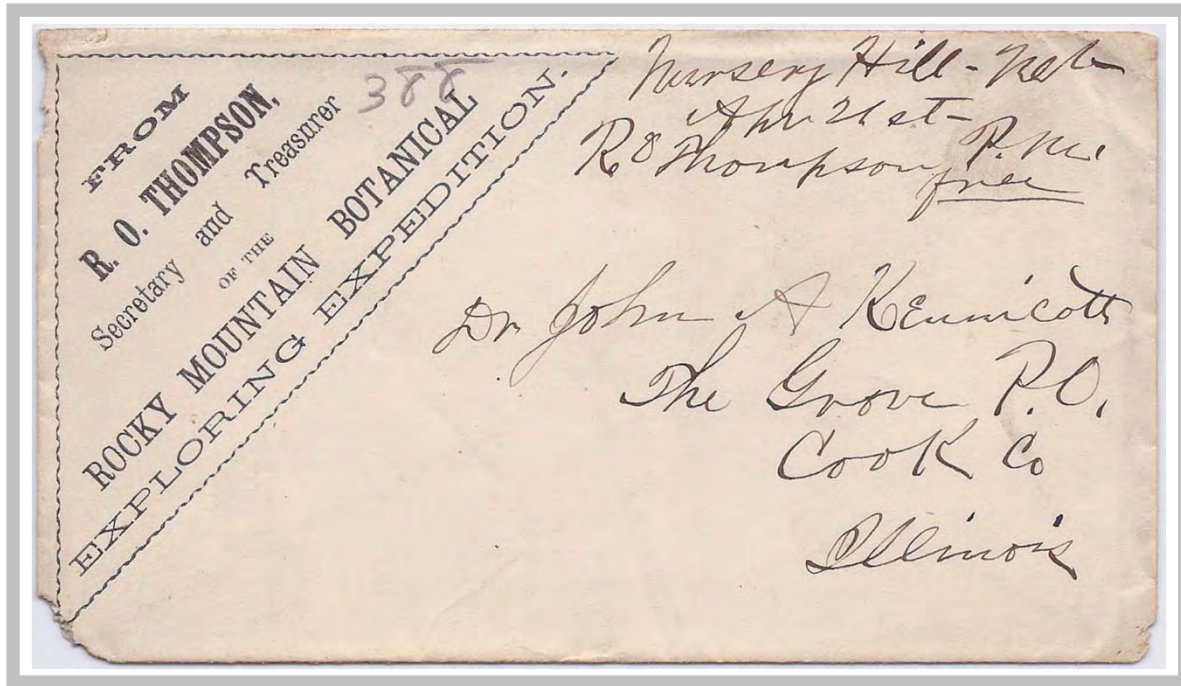 FROM
R. O. THOMPSON,
Secretary and Treasurer
OF THE
ROCKY MOUNTAIN BOTANICAL
EXPLORING EXPEDITION.
388
Nursery Hill - Neb
Apr 21st -
R O Thompson P.M.
free
Dr John A Kennicott
The Grove P.O.
Cook Co
Illinois